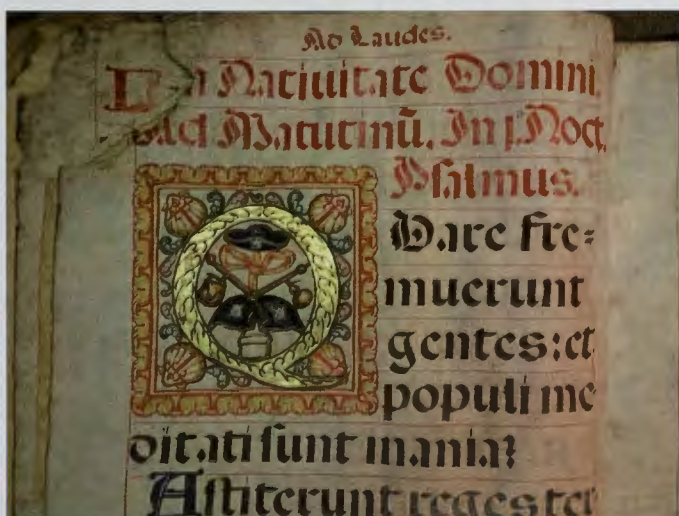 Ad Laudes.
In Natiuitate Domini
ad Matutinū. In j. Noct.
Psalmus.
Quare fre=
muerunt
gentes: et
populi me
ditati sunt inania?
Astiterunt reges ter